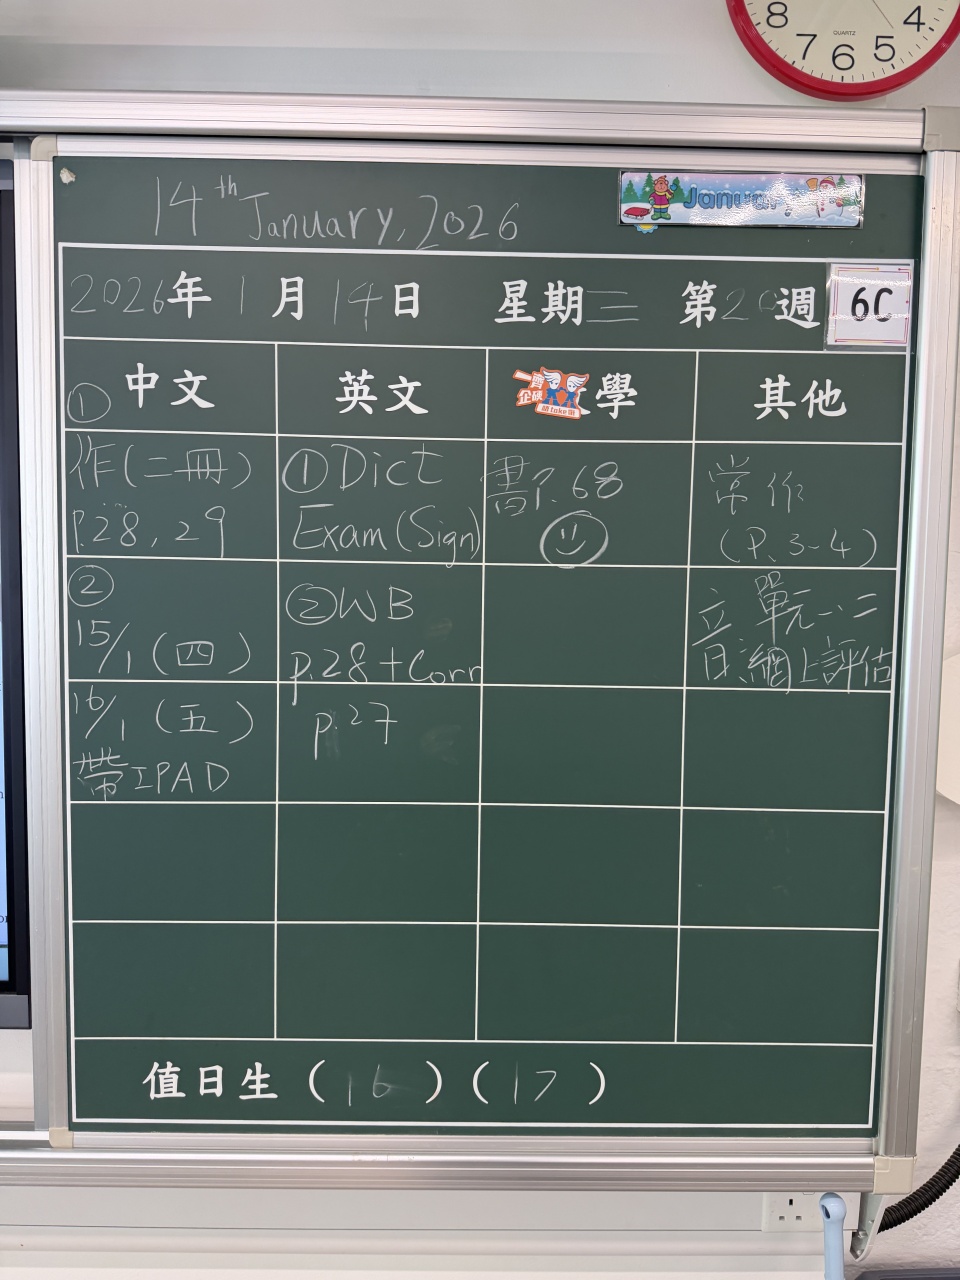 8 7 6 5 4
QUARTZ
14th January, 2026
January
2026年1月14日 星期三 第20週
6C
① 中文
英文
一齊企硬
唔take嘢
學
其他
作(二冊)
P.28, 29
① Dict
Exam (Sign)
書P.68
常作
(P.3-4)
②
15/1 (四)
② WB
p.28 + Corr
音 單元一、二
網上評估
16/1 (五)
帶IPAD
p.27
值日生 (16) (17)